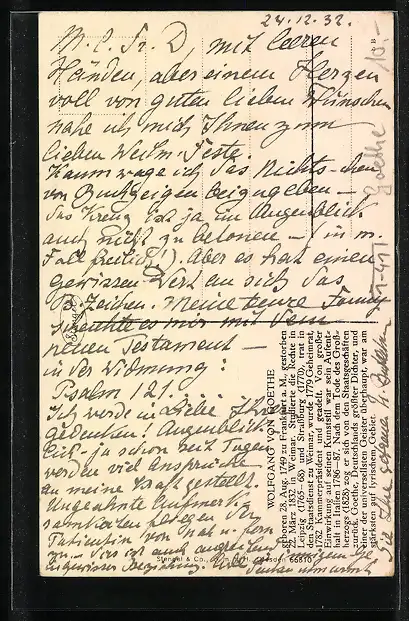 24.12.32.
M. l. Fr. D, mit leeren
Händen, aber einem Herzen
voll von guten lieben Wünschen
nahe ich mich Ihnen zum
lieben Weihn. Feste.
Kaum wage ich das Nichts-chen
von beizugeben –
das Kreuz ist ja im Augenblick
auch nicht zu betonen – (in m.
Fall freilich!). Aber es hat einen
gewissen Wert an sich das
Zeichen. Meine teure Fanny
schenkte es mir mit dem
neuen Testament –
in der Widmung:
Psalm 121. . . .
Ich werde in Liebe Ihrer
gedenken! Augenblick-
lich – ja schon seit Tagen
werden viel Ansprüche
an meine Kraft gestellt.
Aufmerk-
samkeiten pflegen
Patientin von nah u. fern
zu – das ist auch
Beziehung.
WOLFGANG VON GOETHE
geboren 28. Aug. 1749 zu Frankfurt a. M., gestorben
22. März 1832 in Weimar. Studierte die Rechte in
Leipzig (1765–68) und Straßburg (1770), trat in
den Staatsdienst zu Weimar, wurde 1779 Geheimrat,
1782 Kammerpräsident und geadelt. Von großer
Einwirkung auf seinen Kunststil war sein Aufent-
halt in Italien 1786–87. Nach dem Tode des Groß-
herzogs (1828) zog er sich von den Staatsgeschäften
zurück. Goethe, Deutschlands größter Dichter, und
einer der universellsten Geister überhaupt, war am
stärksten auf lyrischem Gebiet.
Stengel & Co., G.m.b.H., Dresden
Goethe 10.-
B